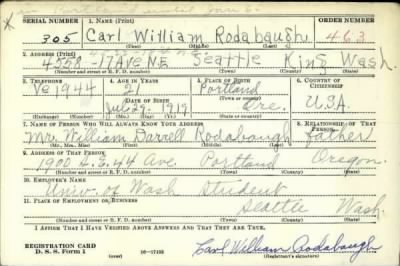 SERIAL NUMBER 1. NAME (Print) ORDER NUMBER
305 Carl William Rodabaugh 463
(First) (Middle) (Last)
2. ADDRESS (Print)
4558-17 AVE NE Seattle King Wash.
(Number and street or R. F. D. number) (Town) (County) (State)
3. TELEPHONE 4. AGE IN YEARS 5. PLACE OF BIRTH 6. COUNTRY OF CITIZENSHIP
Ve 1944 21 Portland
DATE OF BIRTH (Town or county)
July 29, 1919 Ore. U.S.A.
(Exchange) (Number) (Mo.) (Day) (Yr.) (State or country)
7. NAME OF PERSON WHO WILL ALWAYS KNOW YOUR ADDRESS 8. RELATIONSHIP OF THAT PERSON
Mr. William Darrell Rodabaugh father
(Mr., Mrs., Miss) (First) (Middle) (Last)
9. ADDRESS OF THAT PERSON
1900 44 Ave. Portland Oregon.
(Number and street or R. F. D. number) (Town) (County) (State)
10. EMPLOYER'S NAME
Univ. of Wash Student
11. PLACE OF EMPLOYMENT OR BUSINESS
Seattle Wash.
(Number and street or R. F. D. number) (Town) (County) (State)
I AFFIRM THAT I HAVE VERIFIED ABOVE ANSWERS AND THAT THEY ARE TRUE.
REGISTRATION CARD
D. S. S. Form 1 16-17105 Carl William Rodabaugh
(Registrant's signature)